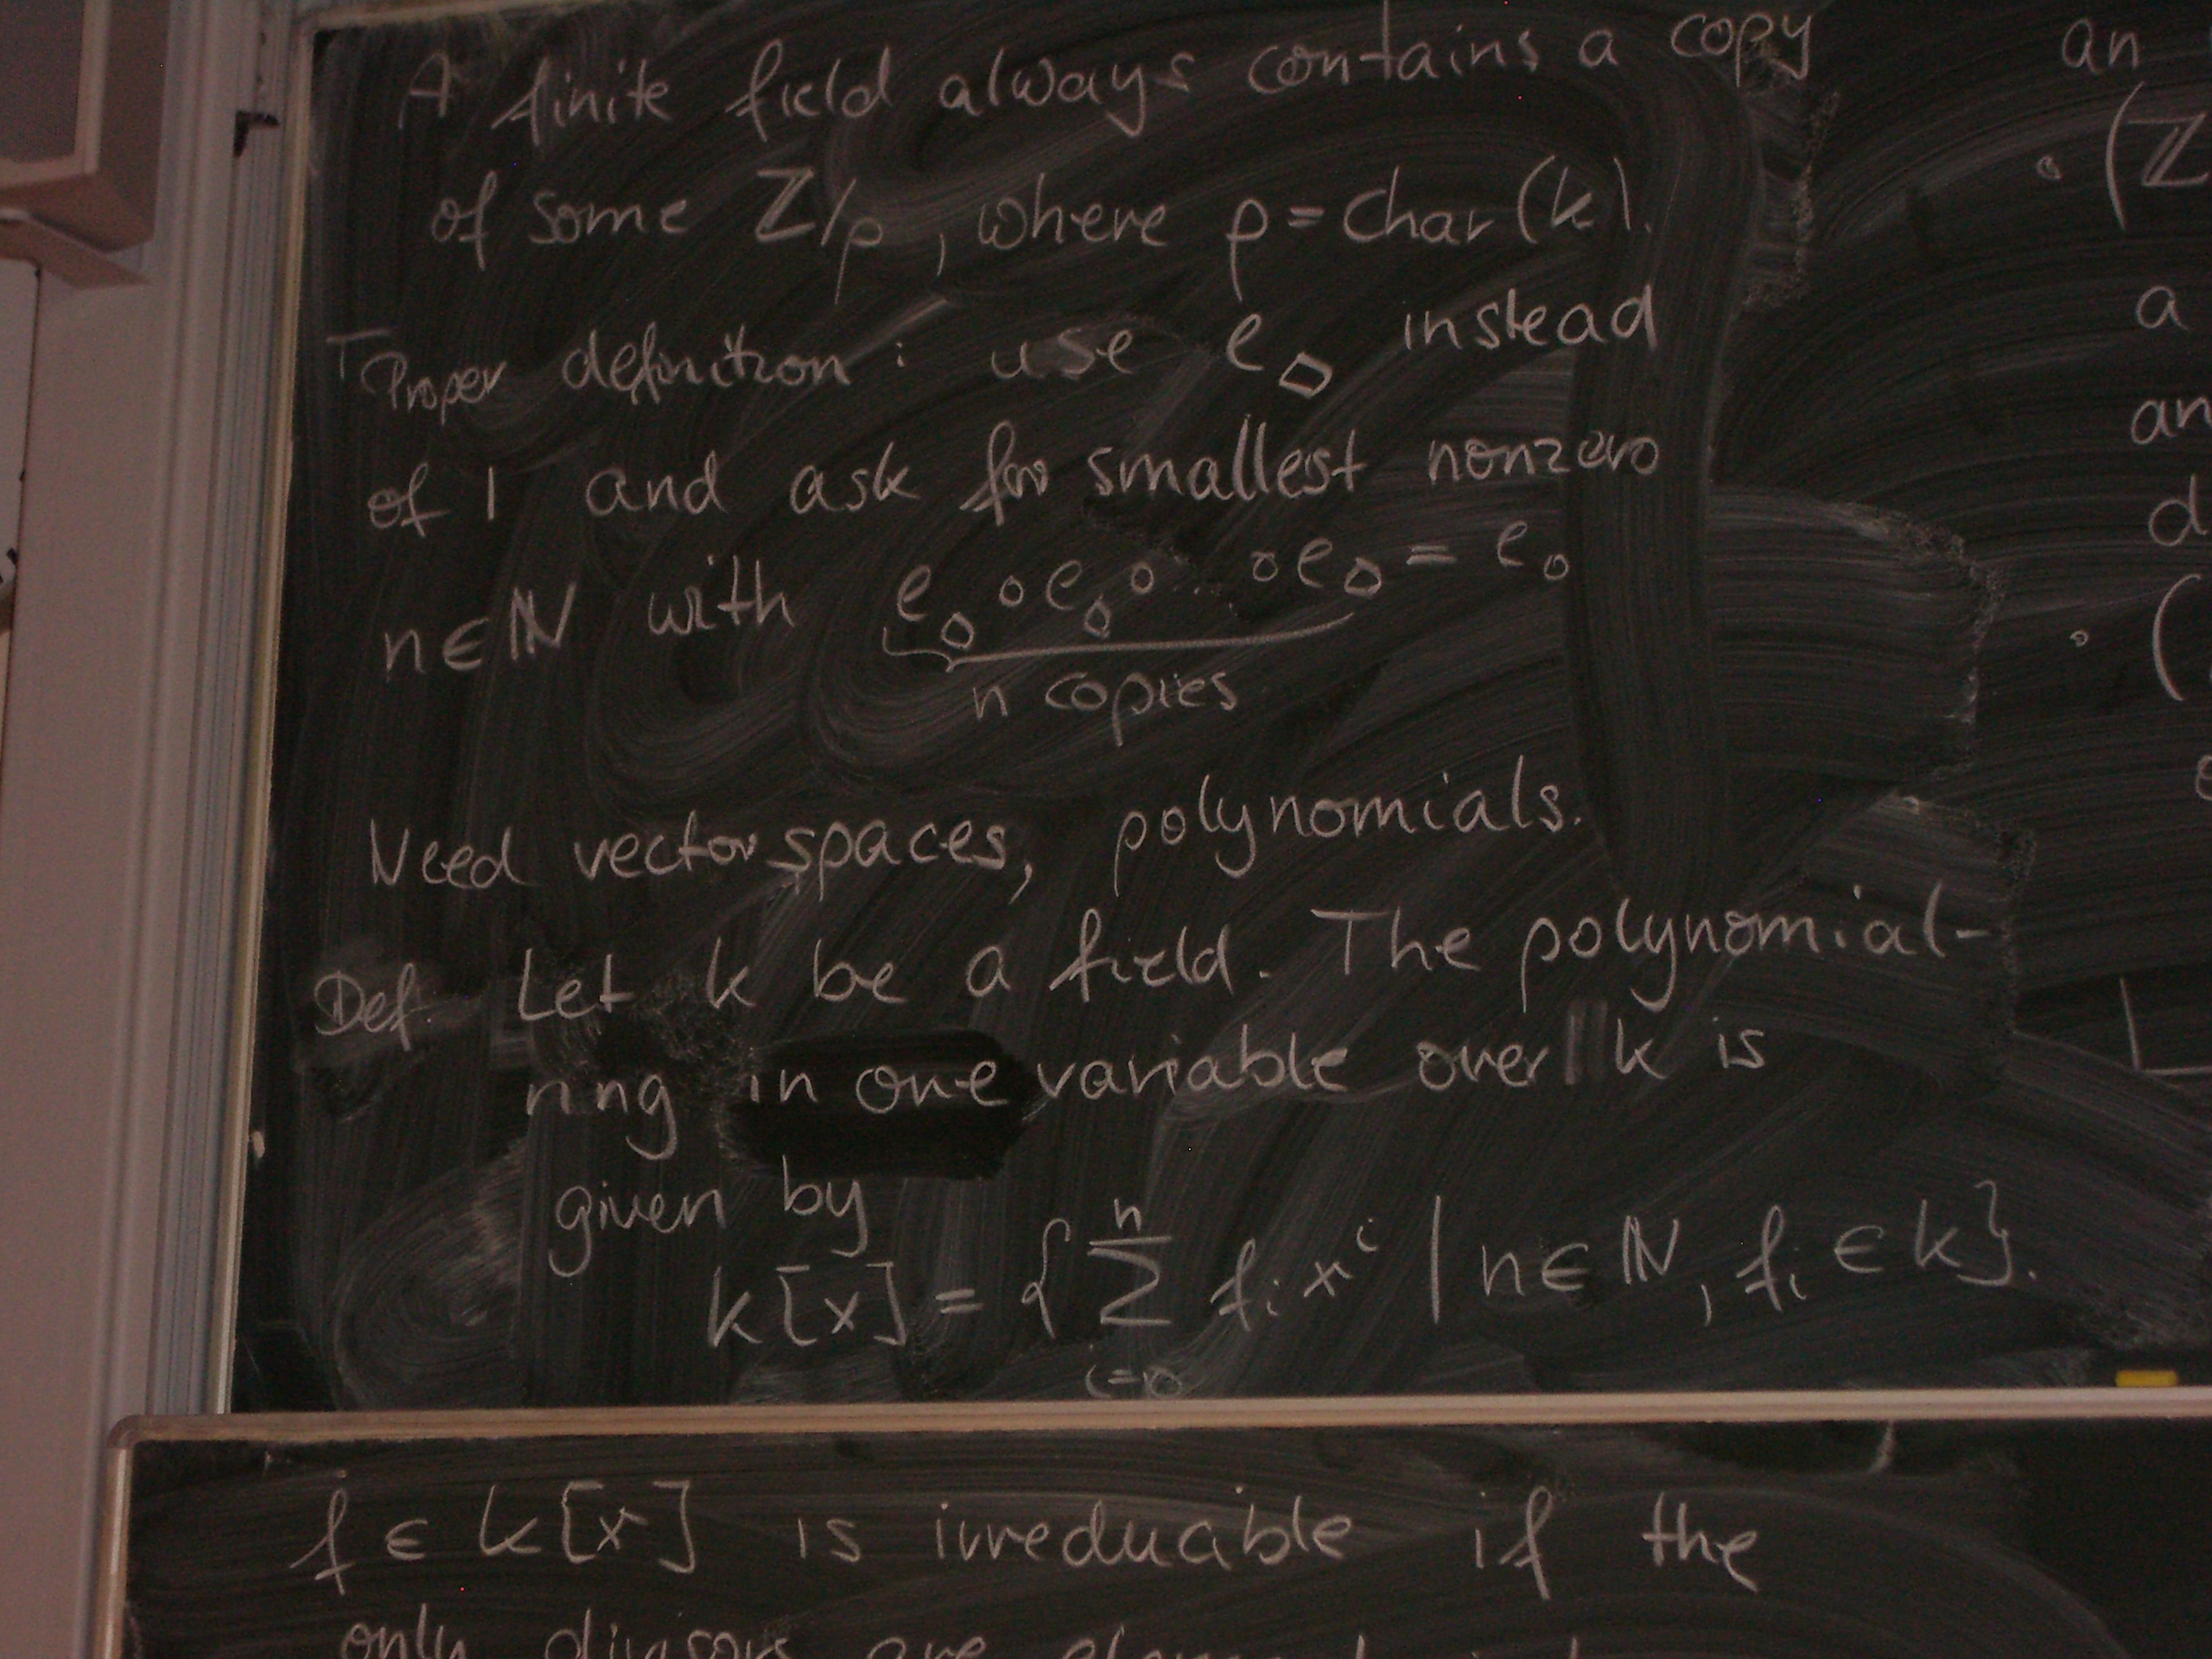 A finite field always contains a copy
of some ℤ/p, where p = char(k).
Proper definition: use e_◇ instead
of 1 and ask for smallest nonzero
n ∈ ℕ with e_◇ ∘ e_◇ ∘ ... ∘ e_◇ = e_∘
n copies
Need vectorspaces, polynomials.
Def. Let k be a field. The polynomial-
ring in one variable over k is
given by
k[x] = { Σ_{i=0}^{n} f_i x^i | n ∈ ℕ, f_i ∈ k}.
f ∈ k[x] is irreducible if the
only divisors are
an
∘ (ℤ
a
an
d
∘ (